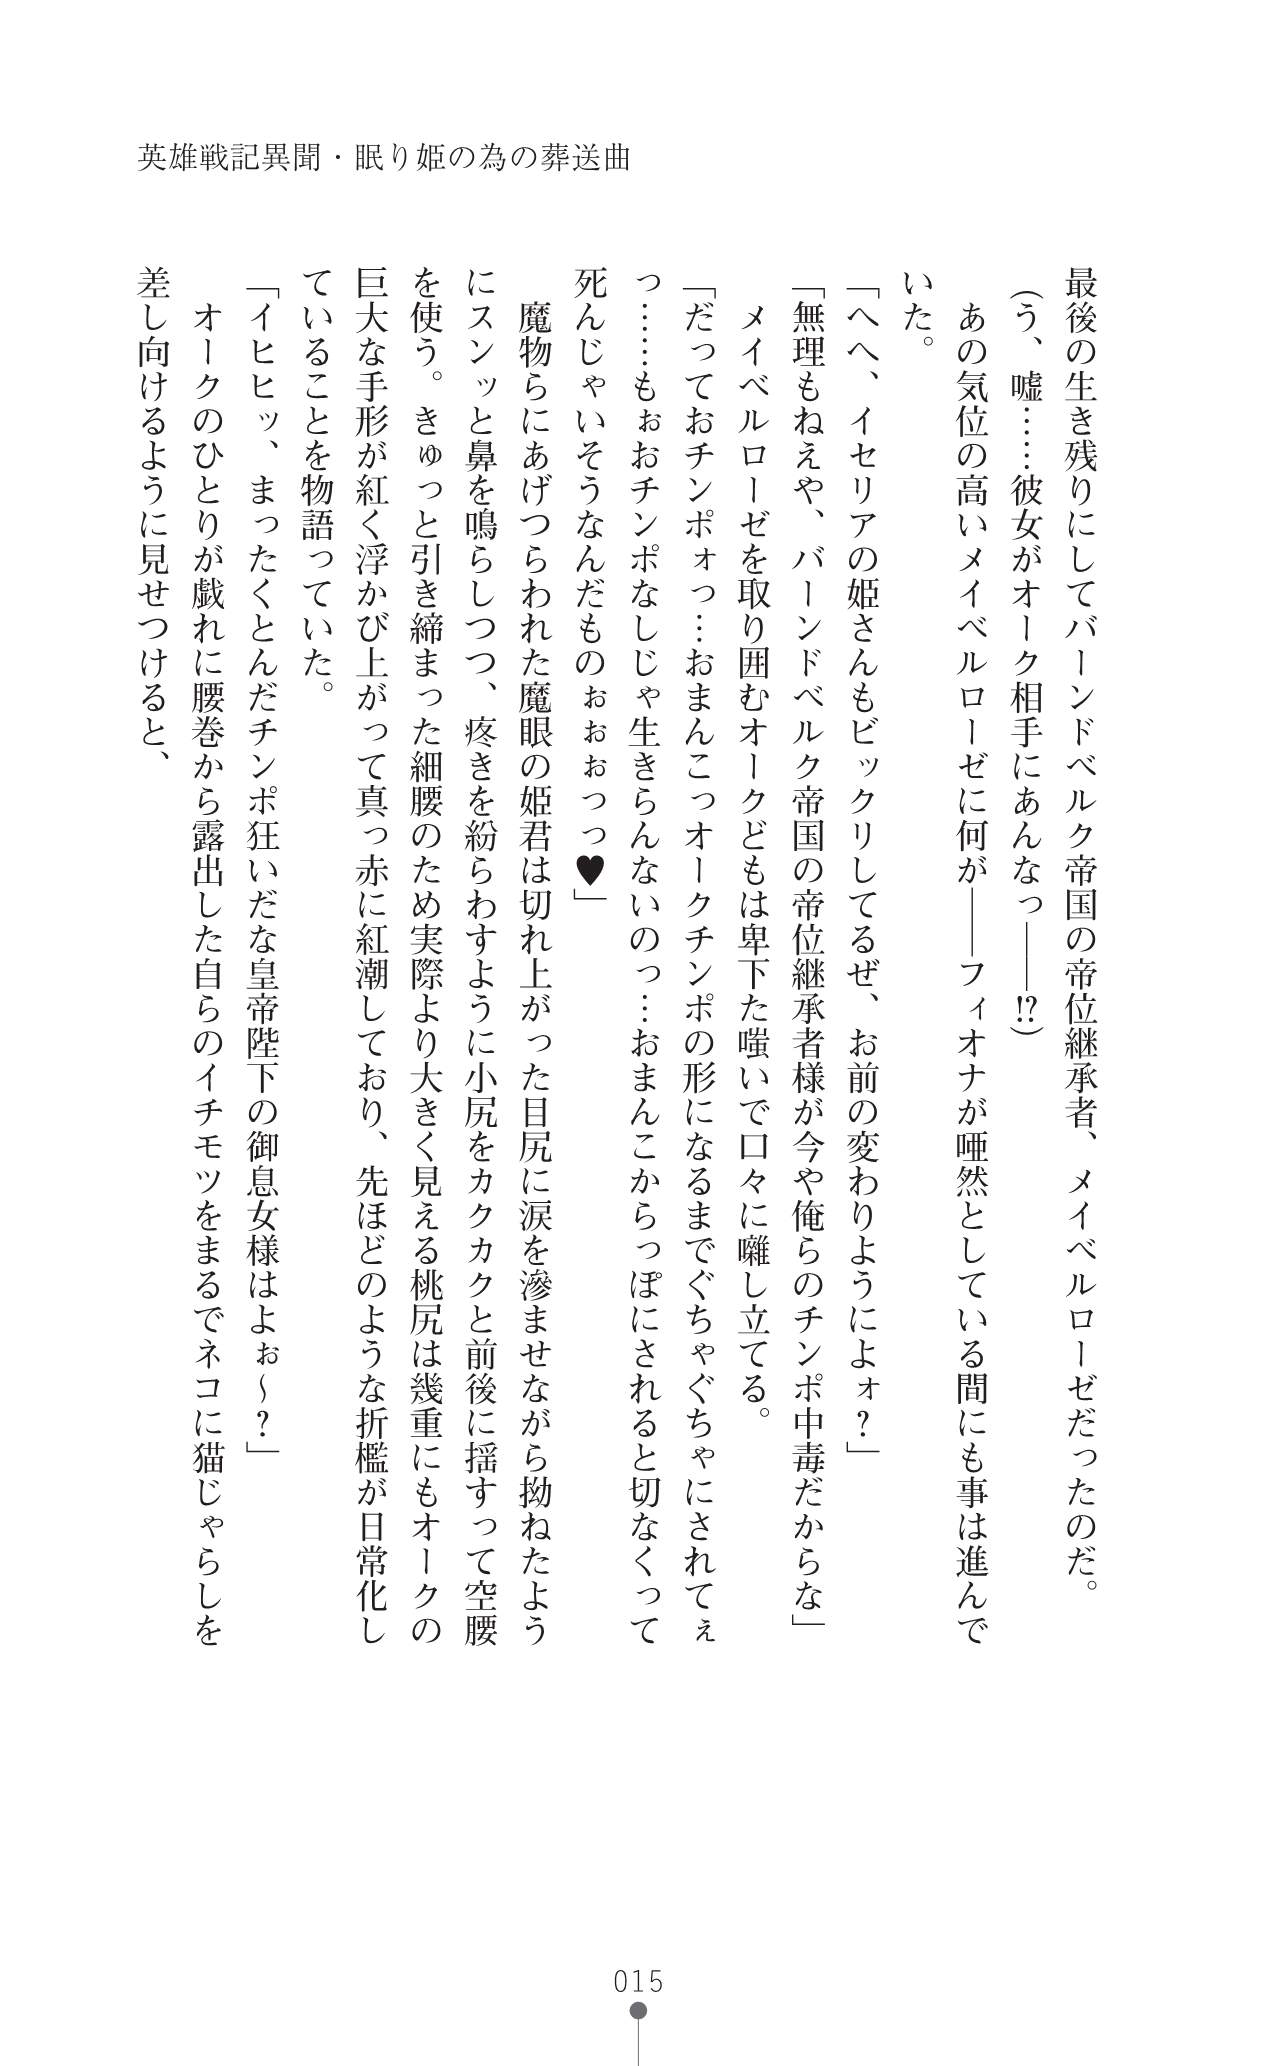 英雄戦記異聞・眠り姫の為の葬送曲
最後の生き残りにしてバーンドベルク帝国の帝位継承者、メイベルローゼだったのだ。
(う、嘘……彼女がオーク相手にあんなっ――!?)
　あの気位の高いメイベルローゼに何が――フィオナが唖然としている間にも事は進んで
いた。
「へへ、イセリアの姫さんもビックリしてるぜ、お前の変わりようによォ?」
「無理もねえや、バーンドベルク帝国の帝位継承者様が今や俺らのチンポ中毒だからな」
　メイベルローゼを取り囲むオークどもは卑下た嗤いで口々に囃し立てる。
「だっておチンポォっ…おまんこっオークチンポの形になるまでぐちゃぐちゃにされてぇ
っ……もぉおチンポなしじゃ生きらんないのっ…おまんこからっぽにされると切なくって
死んじゃいそうなんだものぉぉぉっっ♥」
　魔物らにあげつらわれた魔眼の姫君は切れ上がった目尻に涙を滲ませながら拗ねたよう
にスンッと鼻を鳴らしつつ、疼きを紛らわすように小尻をカクカクと前後に揺すって空腰
を使う。きゅっと引き締まった細腰のため実際より大きく見える桃尻は幾重にもオークの
巨大な手形が紅く浮かび上がって真っ赤に紅潮しており、先ほどのような折檻が日常化し
ていることを物語っていた。
「イヒヒッ、まったくとんだチンポ狂いだな皇帝陛下の御息女様はよぉ～?」
　オークのひとりが戯れに腰巻から露出した自らのイチモツをまるでネコに猫じゃらしを
差し向けるように見せつけると、
015